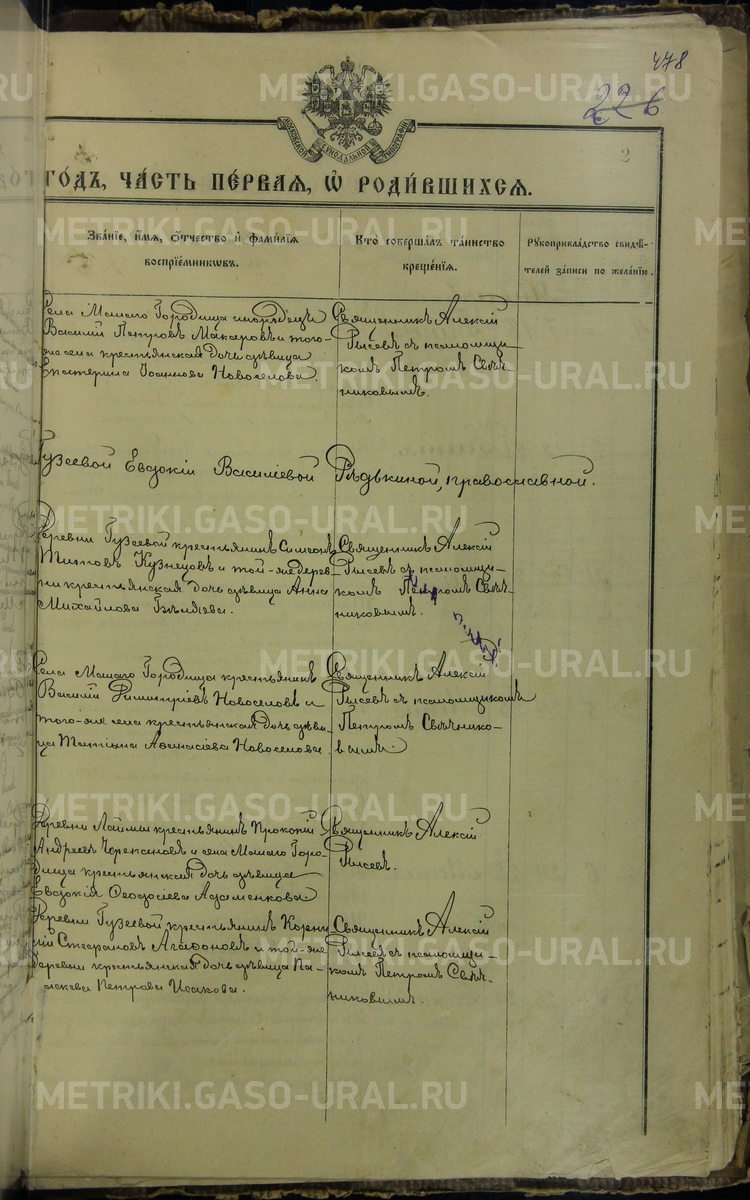 478
226
МОСКОВСКОЙ СѴНОДАЛЬНОЙ ТИПОГРАФІИ
2
ГОДЪ, ЧАСТЬ ПЕРВАЯ, Ѡ РОДИВШИХСЯ.
Званіе, имя, отчество и фамилія воспріемниковъ.
Кто совершалъ таинство крещенія.
Рукоприкладство свидѣтелей записи по желанію.
Села Малаго Городища инородецъ
Василій Петровъ Макаровъ и того-
же села крестьянская дочь дѣвица
Екатерина Іоаннова Новоселова.
Священникъ Алексій
Рысевъ съ псаломщи-
комъ Петромъ Свѣч-
никовымъ.
Гузеевой Евдокіи Василіевой Рѣдькиной, православной.
Деревни Гузеевой крестьянинъ Симеонъ
Титовъ Кузнецовъ и той-же дерев-
ни крестьянская дочь дѣвица Анна
Михайлова Бѣляева.
Священникъ Алексій
Рысевъ съ псаломщи-
комъ Петромъ Свѣч-
никовымъ.
Села Малаго Городища крестьянинъ
Василій Димитріевъ Новоселовъ и
того-же села крестьянская дочь дѣви-
ца Татіана Аѳанасіева Новоселова.
Священникъ Алексій
Рысевъ съ псаломщикомъ
Петромъ Свѣчнико-
вымъ.
Деревни Лаймы крестьянинъ Прокопій
Андреевъ Черепановъ и села Малаго Горо-
дища крестьянская дочь дѣвица
Евдокія Ѳеодосіева Адаменкова
Священникъ Алексій
Рысевъ.
Деревни Гузеевой крестьянинъ Корни
лій Стефановъ Агафоновъ и той-же
деревни крестьянская дочь дѣвица Па-
раскева Петрова Исакова.
Священникъ Алексій
Рысевъ съ псаломщи-
комъ Петромъ Свѣч-
никовымъ.
METRIKI.GASO-URAL.RU